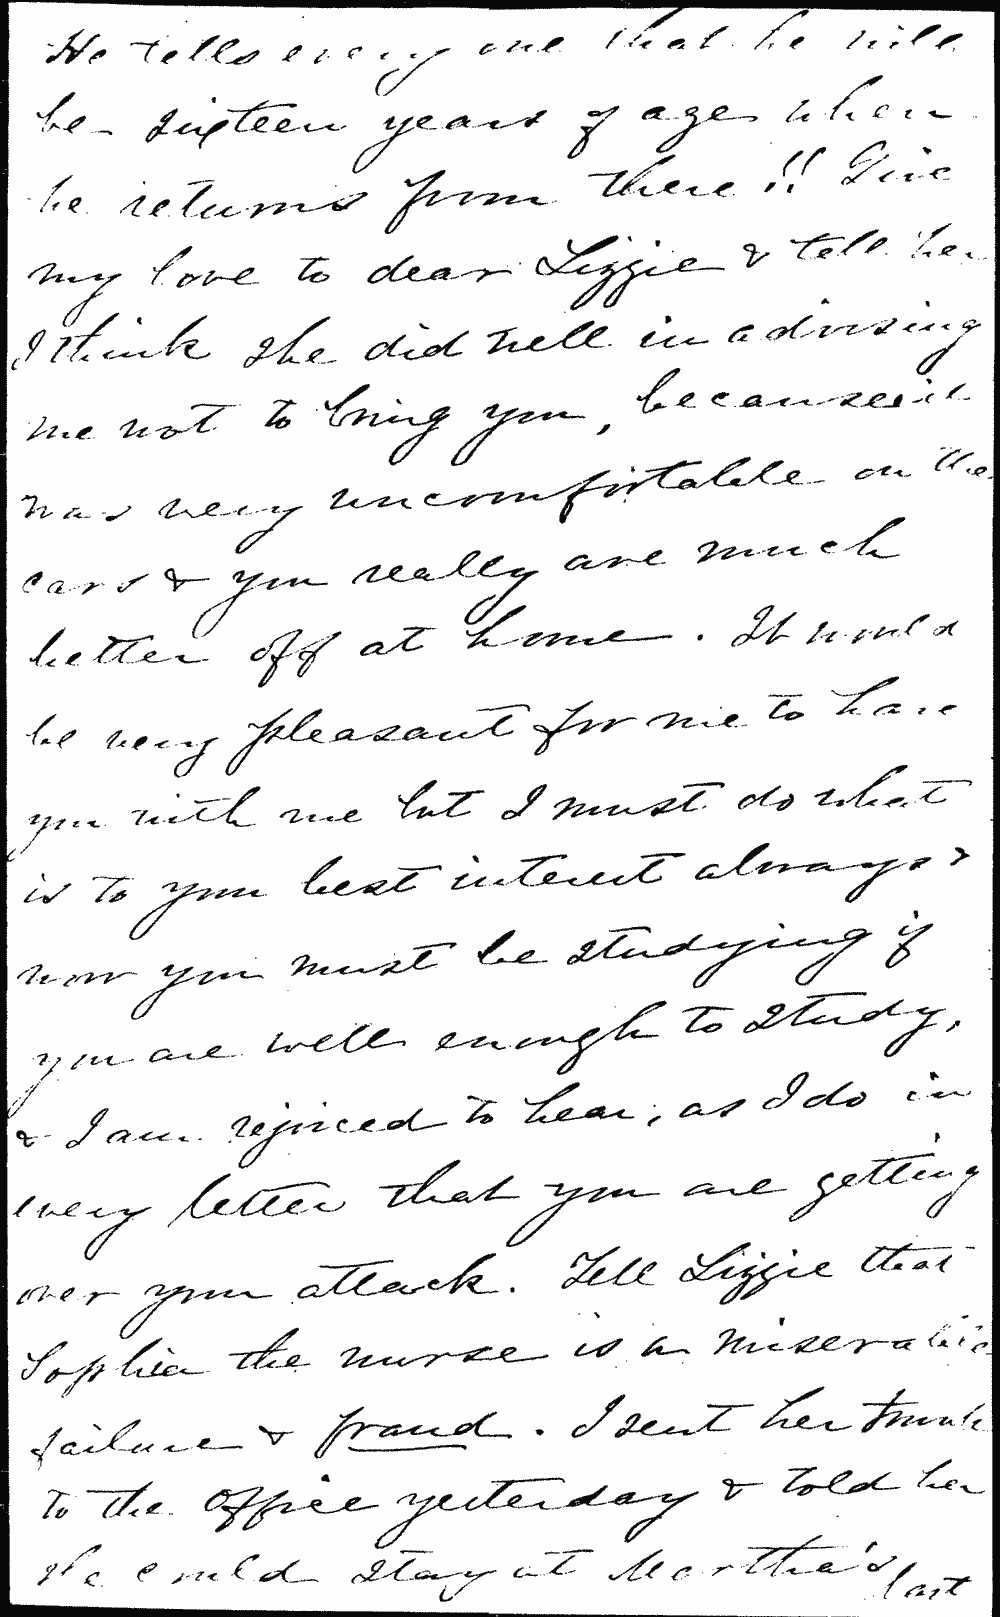 He tells every one that he will
be sixteen years of age when
he returns from there !! Give
my love to dear Lizzie & tell her
I think she did well in advising
me not to bring you, because it
was very uncomfortable on the
cars & you really are much
better off at home. It would
be very pleasant for me to have
you with me but I must do what
is to your best interest always &
now you must be studying if
you are well enough to study,
& I am rejoiced to hear, as I do in
every letter that you are getting
over your attack. Tell Lizzie that
Sophia the nurse is a miserable
failure & fraud. I sent her trunk
to the office yesterday & told her
she could stay at Martha's last